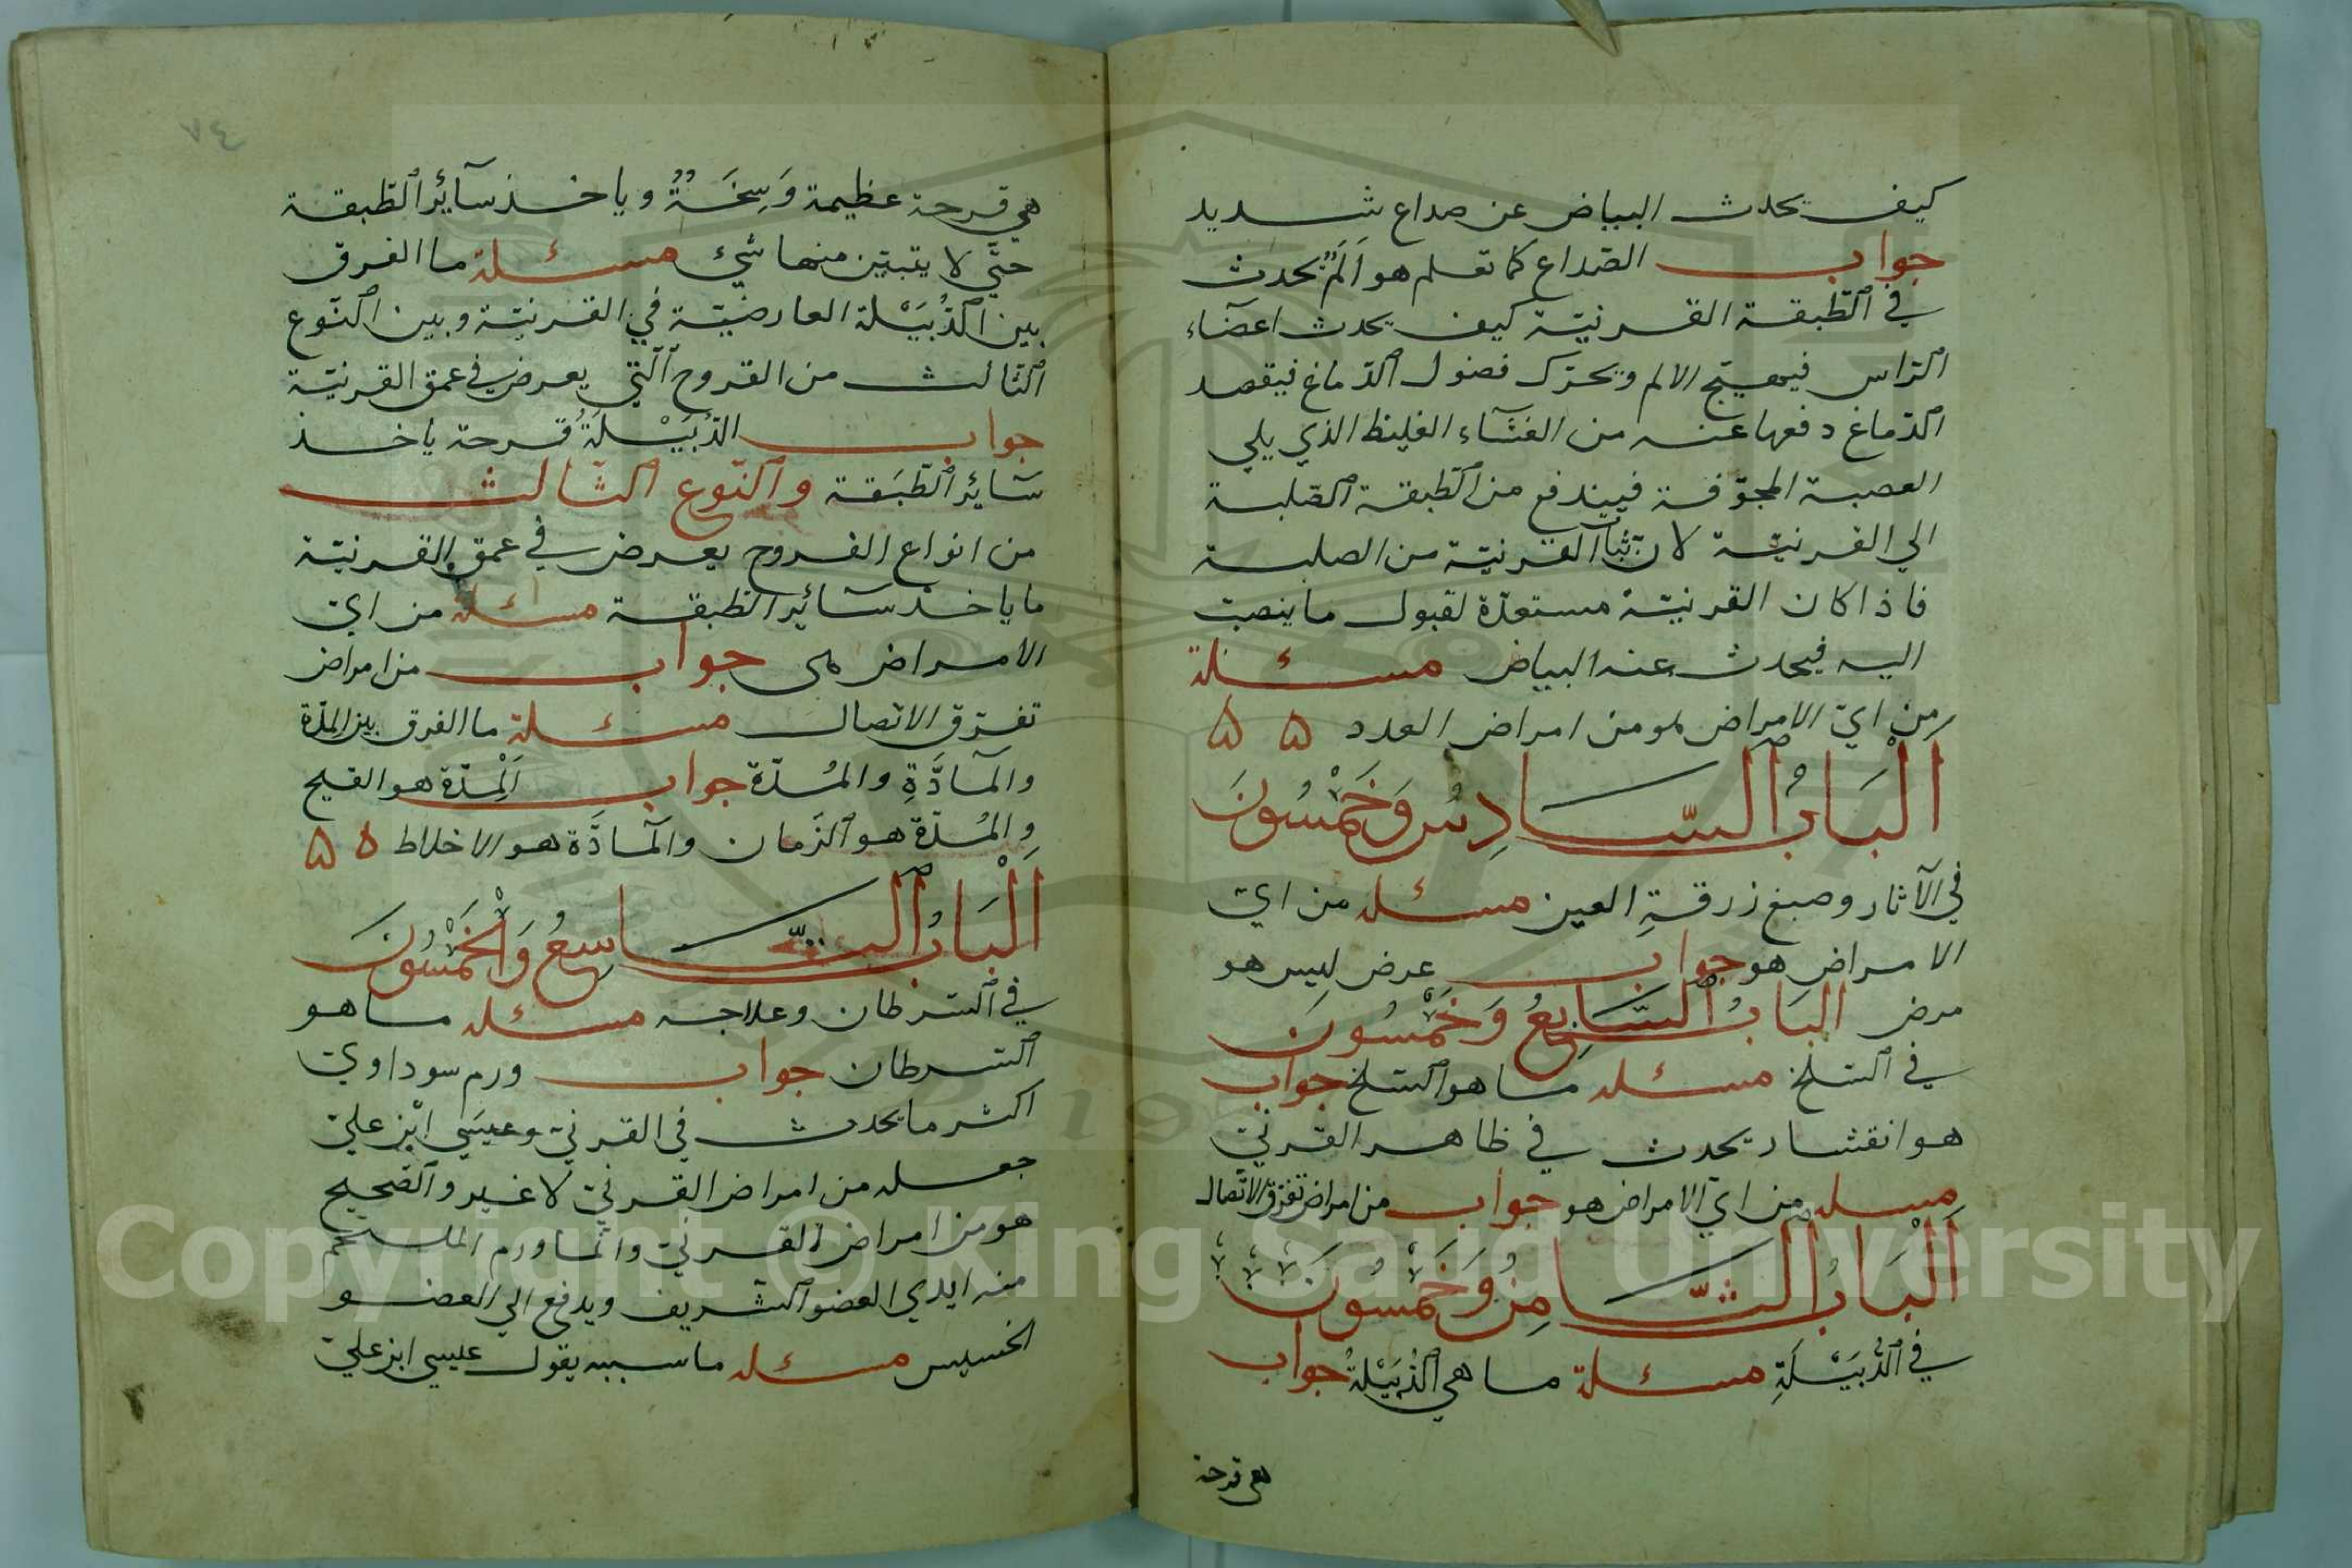 كيف يحدث البياض عن صداع شديد
جواب الصّداع كما تعلم هو اَلَمٌ يحدث
في الطّبقة القرنيّة كيف يحدث اعضآء
الرّاس فيهيّج الالم ويحرّك فضول الدّماغ فيقصد
الدّماغ دفعها عنه من الغشآء الغليظ الذي يلي
العصبة المجوّفة فيندفع من الطّبقة الصّلبة
الي القرنيّة لانّ نبات القرنيّة من الصلبة
فاذا كان القرنيّة مستعدّة لقبول ما ينصبّ
اليه فيحدث عنه البياض مسئلة
من ايّ الامراض هو من امراض العدد ۵ ۵
اَلْبَابُ السَّادِسُ وَخَمْسُونَ
في الآثار وصبغ زرقةِ العين مسئله من ايّ
الامراض هو جواب عرض ليس هو
مرض البَابُ السَّابِعُ وَخَمْسُونَ
في السّلخ مسئله ما هو السّلخ جواب
هو انقشار يحدث في ظاهر القرنيّ
مسئله من ايّ الامراض هو جواب من امراض تفرّق الاتّصال
اَلْبَابُ الثَّامِنُ وَخَمْسُونَ
في الدُّبَيْلَةِ مسئلة ما هي الدُّبَيْلَةُ جواب
هي قرحة
هي قرحة عظيمة وَسِخَةٌ وياخذ سآئِرُ الطّبقة
حتّي لا يتبيّن منها شيئ مسئلة ما الفرق
بين الدُّبَيْلة العارضيّة في القرنيّة وبين النّوع
الثّالث من القروح الّتي يعرض في عمق القرنيّة
جواب الدُّبَيْلَةُ قرحة ياخذ
سَآئِر الطّبَقة والنّوع الثّالث
من انواع القروح يعرض في عمق القرنيّة
ما ياخذ سآئير الطّبقة مسئلة من ايّ
الامراض هى جواب من امراض
تفرّق الاتّصال مسئلة ما الفرق بين المدّة
والمآدَّةِ والمُدّة جواب اَلْمِدّة هو القيح
والمُدّة هو الزّمان والمآدَّة هو الاخلاط ۵ ۵
اَلْبَابُ التَّاسِعُ وَالْخَمْسُونَ
في السّرطان وعلاجه مسئله ما هو
السّرطان جواب ورم سوداويّ
اكثر ما يحدث في القرنيّ وعيسَي ابْن عليّ
جعله من امراض القرنيّ لا غير والصّحيح
هو من امراض القرنيّ وانّما ورم الملتحم
منه ايدي العضو الشّريف ويدفع الي العضو
الخسيس مسئله ما سببه يقول عيسي ابن عليّ